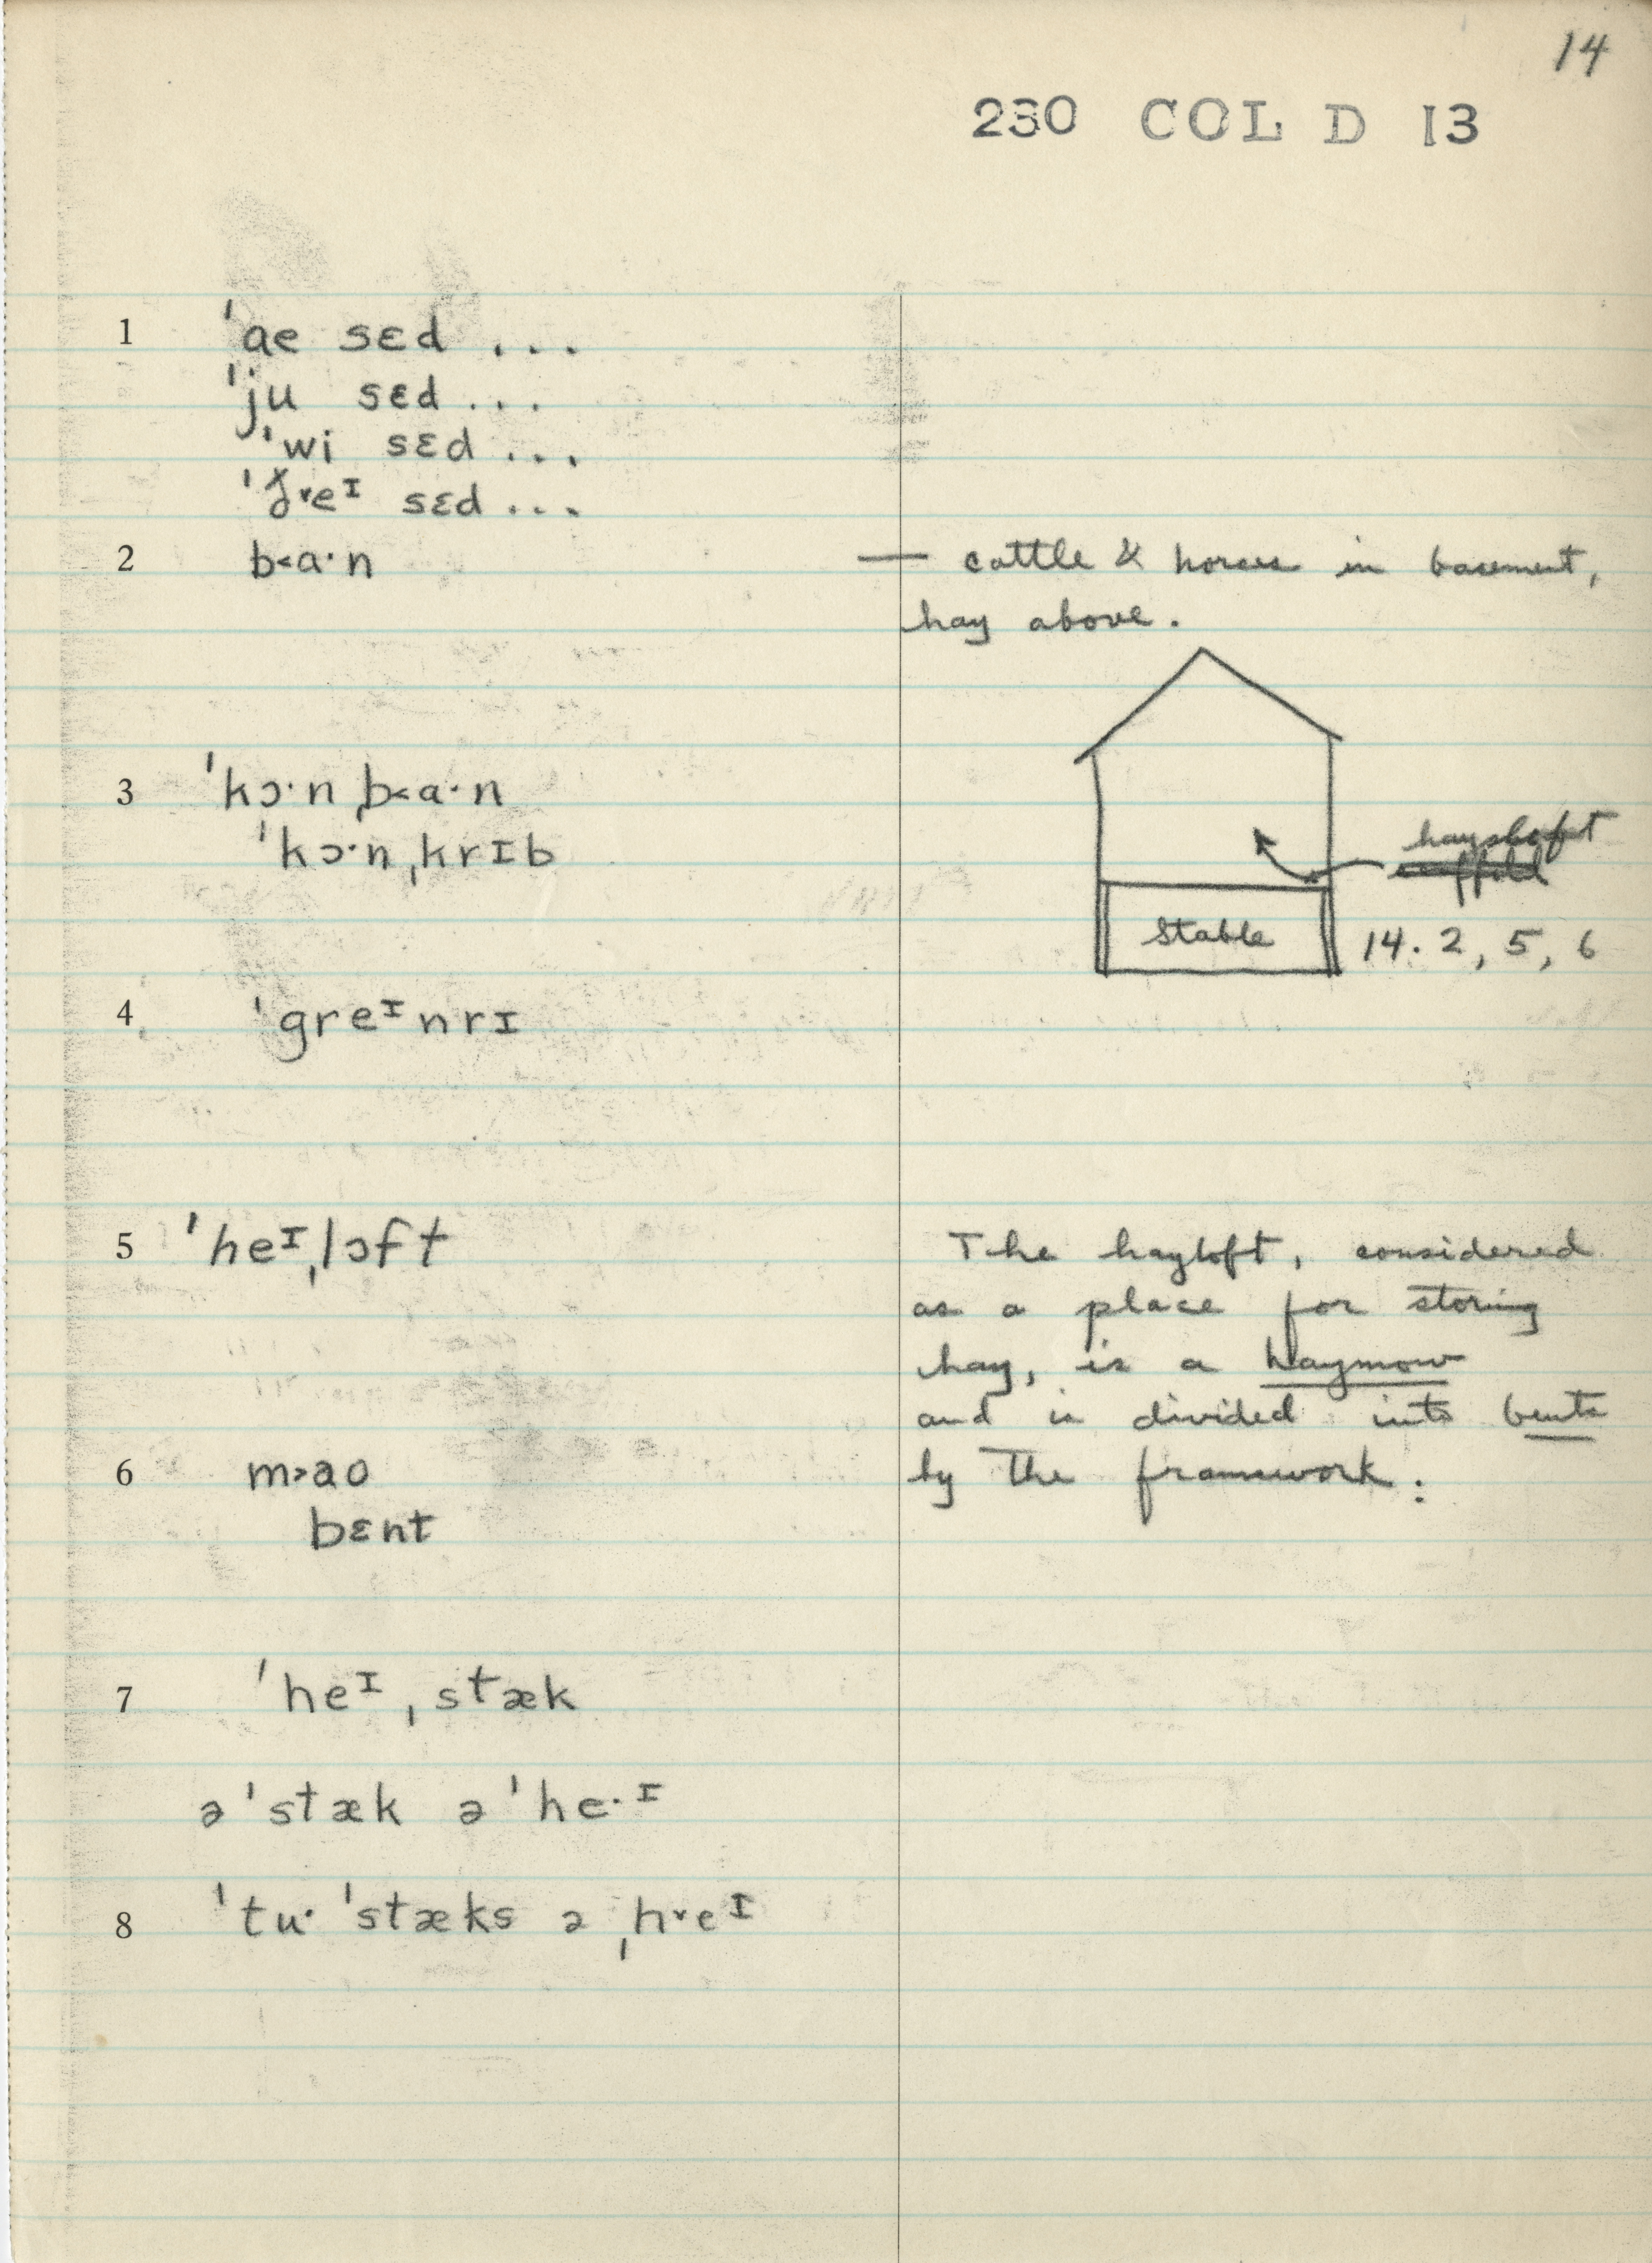 14
230 COL D 13
1 ˈae sɛd ...
ˈju sɛd ...
ˈwi sɛd ...
sɛd ...
2 b˂a·n — cattle & horses in basement,
hay above.
3 ˈkɔ·n ˌb˂a·n
ˈkɔ·n ˌkrɪb
hayloft
scaffold
stable 14. 2, 5, 6
4 ˈgreᶦnrɪ
5 ˈheᶦˌlɔft The hayloft, considered
as a place for storing
hay, is a haymow
and is divided into bents
6 m˃ao by the framework:
bɛnt
7 ˈheᶦˌstæk
ə ˈstæk ə ˈhe·ᶦ
8 ˈtu· ˈstæks ə ˌh˅eᶦ